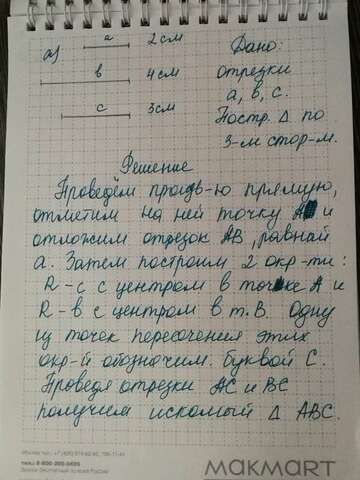 а) a 2 см
b 4 см
c 3 см
Дано:
отрезки
а, в, с.
Постр. Δ по
3-м стор-м.
Решение
Проведём произв-ю прямую,
отметим на ней точку А и
отложим отрезок АВ, равный
а. Затем построим 2 окр-ти:
R - с с центром в точке А и
R - в с центром в т. В. Одну
из точек пересечения этих
окр-й обозначим буквой С.
Проведя отрезки АС и ВС
получим искомый Δ АВС.
8-800-200-5425
Звонок бесплатный по всей России
МАКМАRT